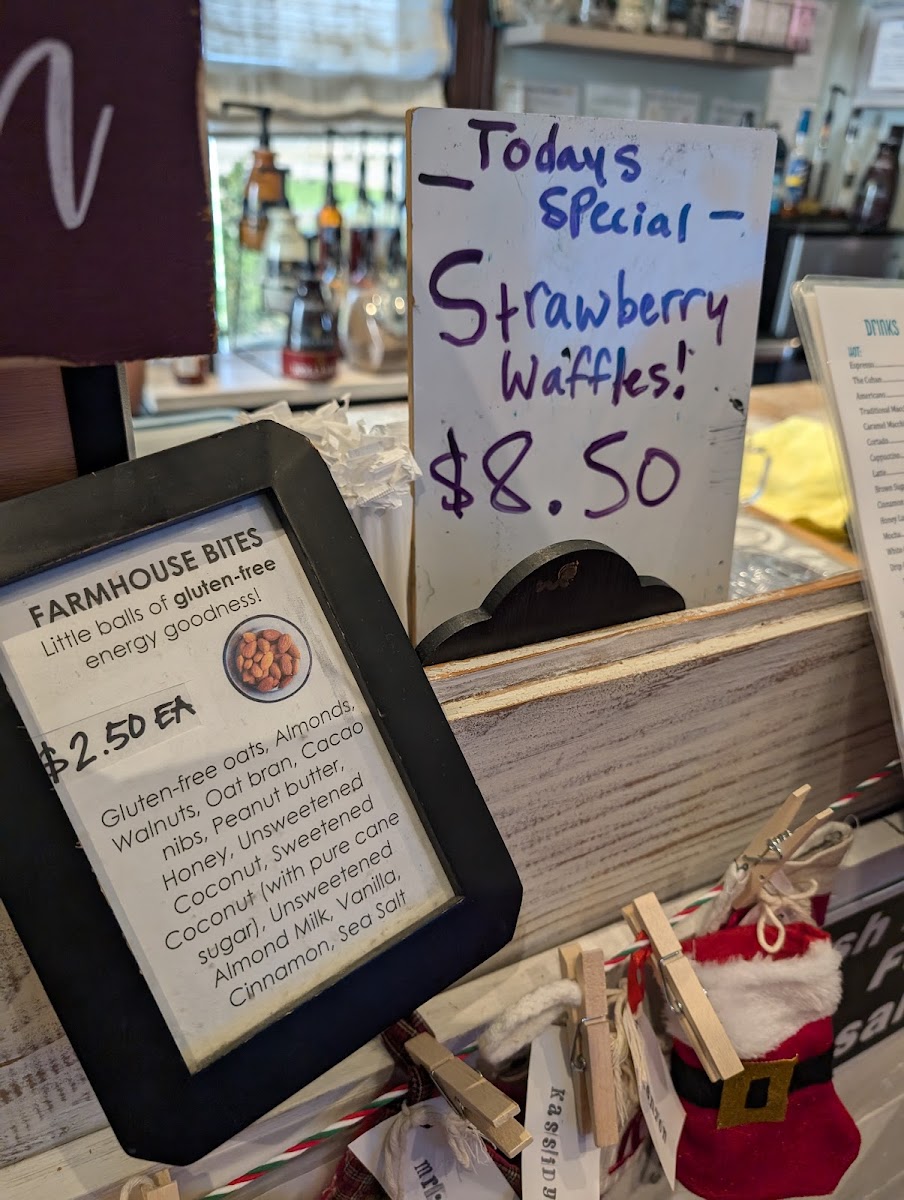 Todays
Special
Strawberry
Waffles!
$8.50
FARMHOUSE BITES
Little balls of gluten-free
energy goodness!
$2.50 EA
Gluten-free oats, Almonds,
Walnuts, Oat bran, Cacao
nibs, Peanut butter,
Honey, Unsweetened
Coconut, Sweetened
Coconut (with pure cane
sugar), Unsweetened
Almond Milk, Vanilla,
Cinnamon, Sea Salt
DRINKS
HOT:
Espresso
The Cuban
Americano
Traditional Macch
Caramel Macch
Cortado
Cappuccino
Latte
Brown Sug
Cinnamon
Honey La
Mocha
White
Drip
KASSIDY
mr.